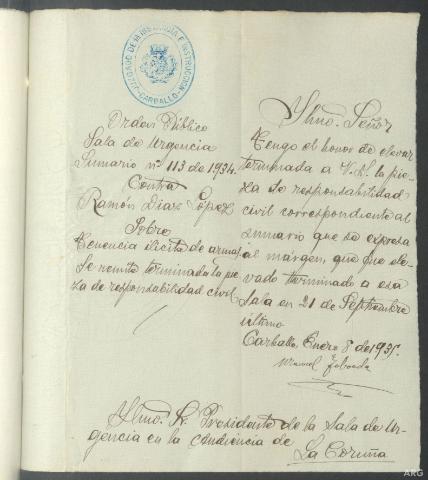 JUZGADO DE 1ª INSTANCIA E INSTRUCCION
CARBALLO
Orden Público
Sala de Urgencia
Sumario nº 113 de 1934.
Contra
Ramón Diaz López
Sobre
Tenencia ilicita de armas
Se remite terminada la pie-
za de responsabilidad civil
Ylmo. Señor
Tengo el honor de elevar
terminada a V.S. la pie-
za de responsabilidad
civil correspondiente al
sumario que se expresa
al margen, que fue ele-
vado terminado a esa
Sala en 21 de Septiembre
ultimo
Carballo Enero 8 de 1935.
Manuel Taboada
Ylmo. Sr. Presidente de la Sala de Ur-
gencia en la Audiencia de
La Coruña
ARG